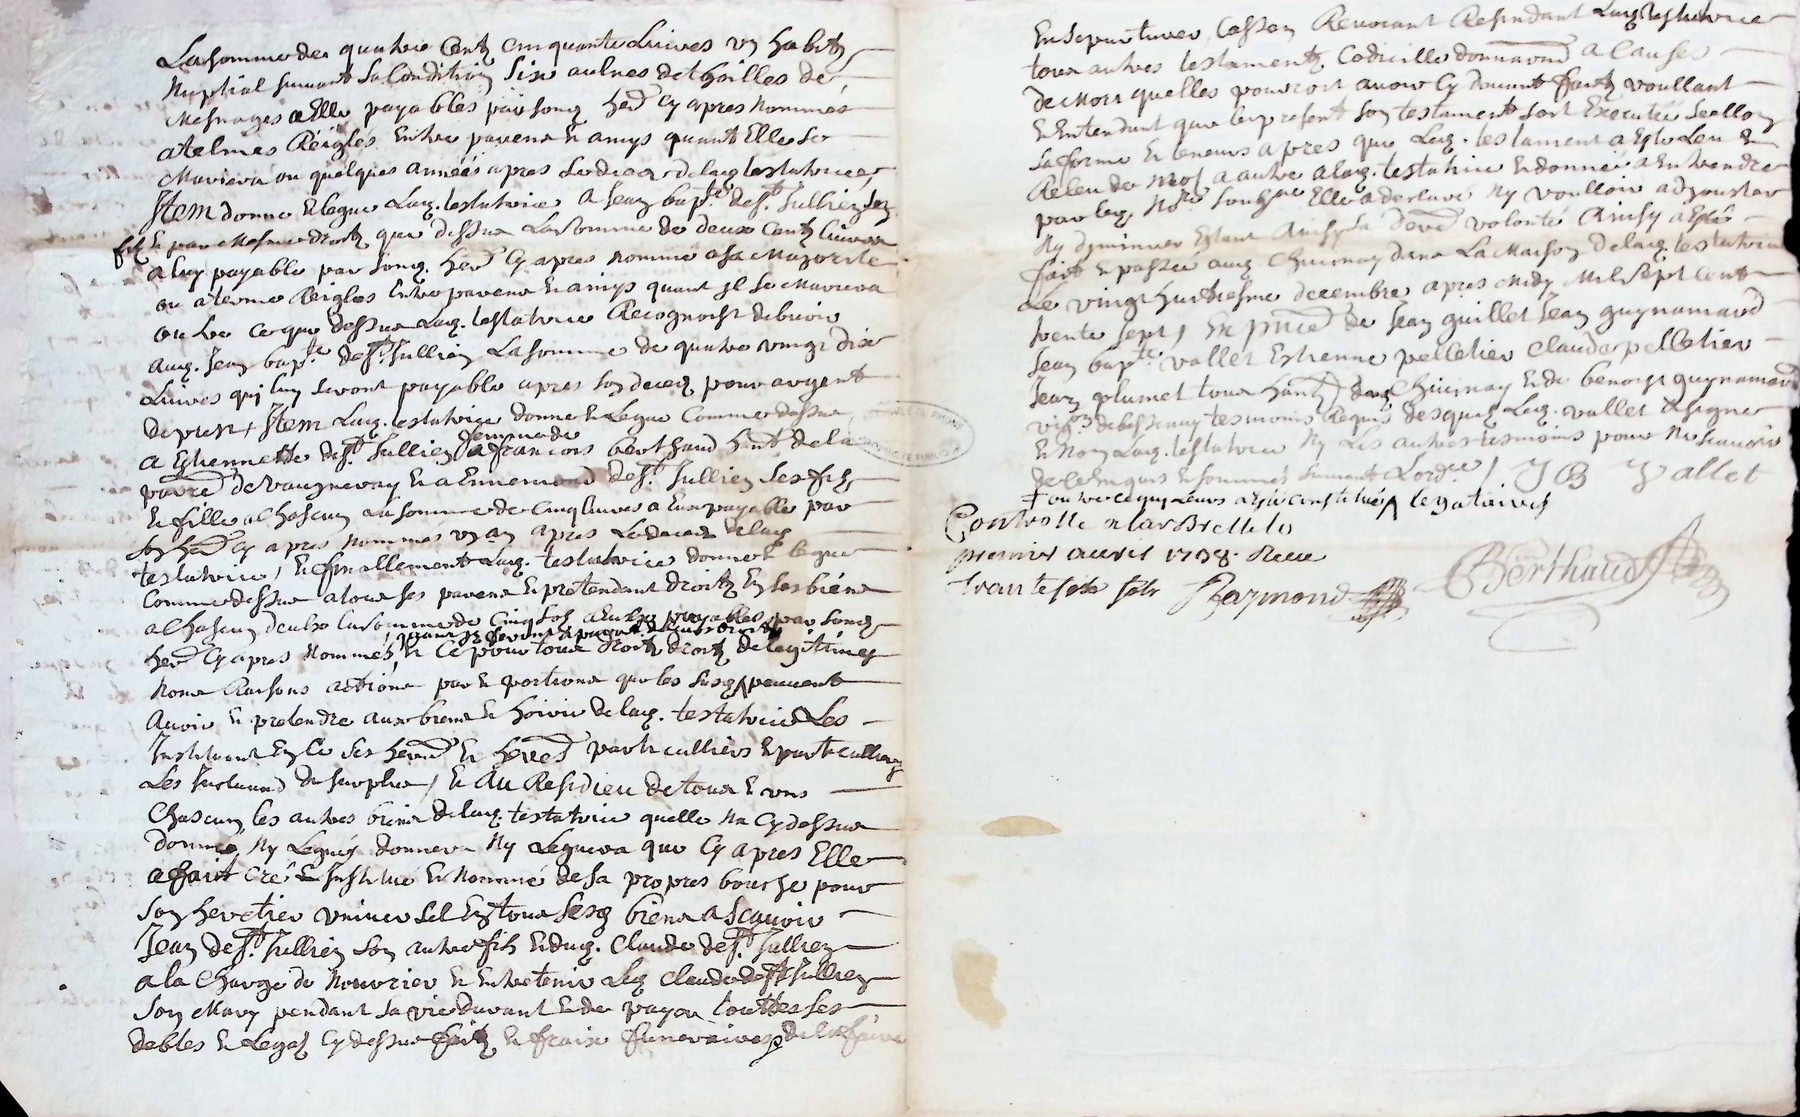 La somme de quatre centz cinquante Livres un habitz
Nuptial suivant sa Condition six aulnes de thoilles de
Mesnages a elle payables par sond. her. cy apres nommés
a telmes Réiglés Entre parens et amys quant Elle se
Mariera ou quelques années apres le deces de lad. testatrice
Item donne et legue Lad. testatrice A Jean bapte. de st. Jullien son
filz et par mesme droitz que dessus La Somme de deux Centz livres
a luy payable par sond. her. Cy apres nommé a sa Majorité
ou a terme Réiglés Entre parens et amys quant il se mariera
outre ce que dessus Lad. testatrice Recognoist debvoir
aud. Jean bapte. de st. Jullien La somme de quatre vingt dix
Livres qui luy seront payable apres son deces pour argent
de prest, Item Lad. testatrice donne et Legue Comme dessus
a Ethiennette de st. Jullien femme de francois berthaud hant. de la
parre. de vaugneray et a Ennemond de st. Jullien ses filz
et fille a Chascun la somme de Cinq livres a Eux payable par
son her. Cy apres nommés un an apres Le deces de lad.
testatrice, et finallement Lad. testatrice donne et legue
Comme dessus a tous ses parens et pretendant droitz En ses biens
a Chascun deulx la somme de Cinq sols a Eux payables par sond.
quant ilz feront
her. Cy apres nommés, et Ce pour tous droitz de legitimes
noms Raisons actions part et portions que les susd. peuvent
Avoir et pretendre aux biens et hoirie de lad. testatrice Les
Instituant En Ce ses her. et her. particulliers et particulliere
Les du surplus, et Au Residieu de tous et uns
Chascun les autres biens de lad. testatrice quelle na Cy dessus
donné, Ny Legués donnera Ny Leguera que Cy apres Elle
a fait Créé et Institué et Nommé de sa propres bouche pour
son heretier universel En tous sesd. biens a scavoir
Jean de st. Jullien son autre fils et dud. Claude de st. Jullien
a la Charge de Nourrier et Entretenir Led. Claude de st. Jullien
son Mary pendant sa vie durant et de payer touttes ses
debtes et Legatz Cy dessus faitz et fraix funeraires de la faire
Ensepvelturer, Cassen Revocant Resindant Lad. testatrice
tous autres testamentz Codicille donnaõns a Causes
de Mort quelles pourroit avoir Cy devant faitz voullant
et Entendant que le present son testament soit Executée Seellon
sa forme et teneurs apres que Led. testament a Esté Leu et
Releu de mot a autre a lad. testatrice et donné a Entendre
par led. nore. soubzne. Elle a desclaré Ny voulloir adjouster
Ny dyminuer Estant Ainsy sa dere. volonté Ainsy a Esté
fait et passée aud. Chivinay dans La Maison de lad. testatrice
Le vingt huictiesme decembre apres midy Mil Sept Cent
trente sept, En pñce de Jean guillet Jean guynamard
Jean bapte. vallet Estienne pelletier Claude pelletier
Jean plumet tous hantz. dud. Chivinay et de benoist guynamard
de bessenay tesmoins Requis desquels Led. vallet a signé
et Non Lad. testatrice Ny Les autres tesmoins pour ne scavoir
de ce Enquis et sommés suivant Lordce. / J B Vallet
Controllé a Larbrelle le
premier avril 1738. Receu
trante six sols Raymond
Berthaud